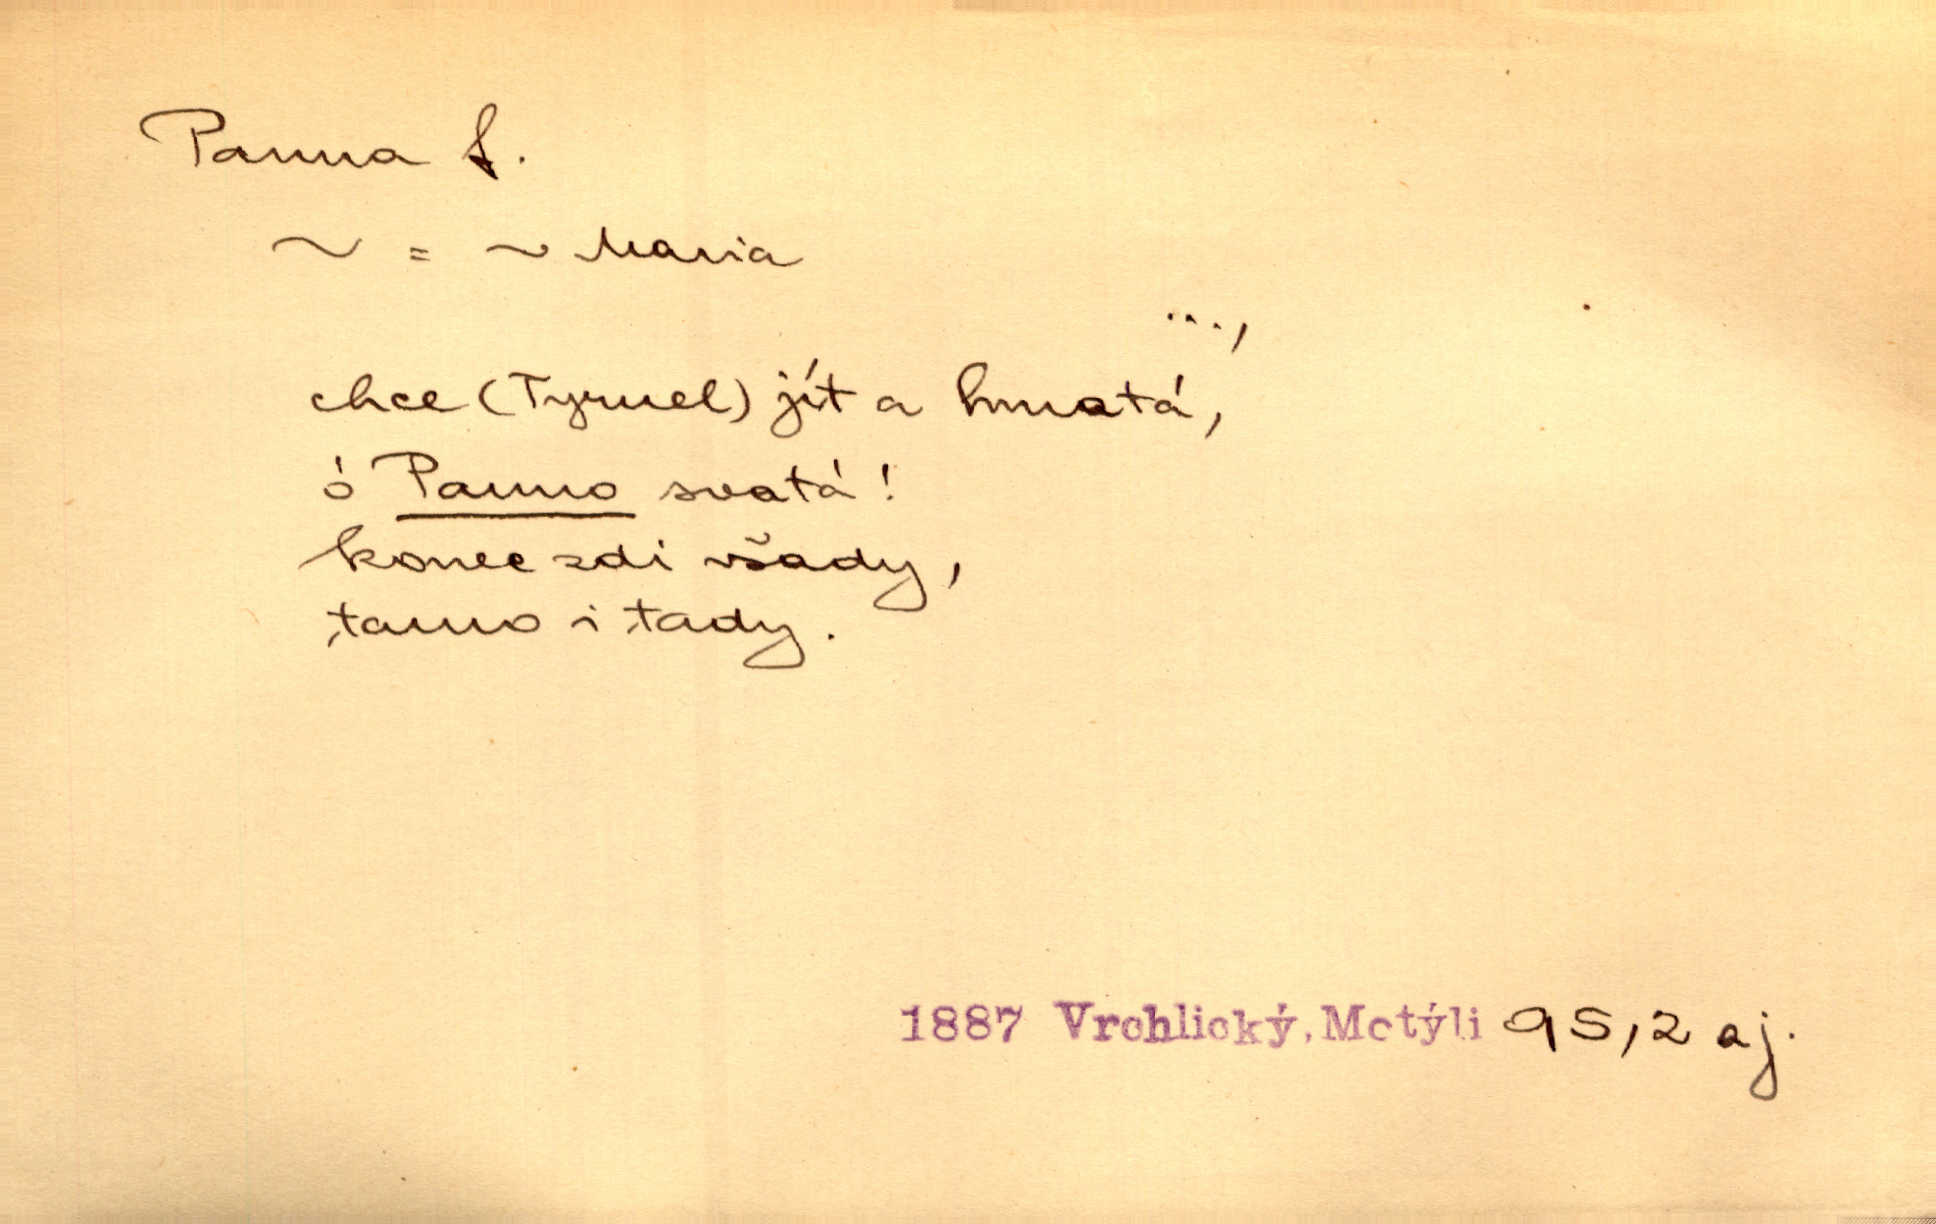 Panna f.
~ = ~ Maria
...,
chce (Tyrnel) jít a hmatá,
ó Panno svatá!
konec zdi všady,
tamo i tady.
1887 Vrchlický, Motýli 95,2 aj.